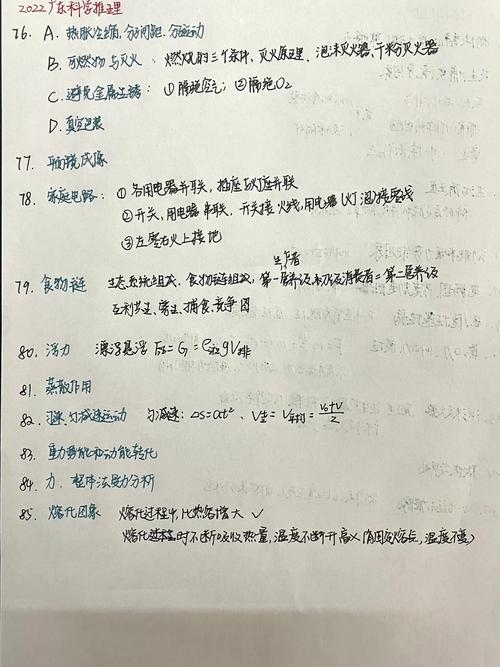 2022广东科学推理
76. A. 热胀冷缩,分子间距,分子运动
B. 可燃物与灭火:燃烧的三个条件,灭火原理、泡沫灭火器、干粉灭火器
C. 避免金属生锈:①隔绝空气;②隔绝O2
D. 真空包装
77. 平面镜成像
78. 家庭电路:①各用电器并联,插座与灯座并联
②开关,用电器串联,开关接火线,用电器(灯泡)接零线
③左零右火上接地
79. 食物链 生态系统组成,食物链组成,第一营养级 初级消费者=第二营养级
生产者
互利共生、寄生、捕食、竞争图
80. 浮力 漂浮悬浮 F浮=G=ρ液gV排
81. 蒸散作用
82. 匀减速运动 匀减速:Δs=at²、V=V=(v0+v)/2
83. 重力势能和动能转化
84. 力,整体法受力分析
85. 熔化图象 熔化过程中,比热容增大✓
熔化过程时不断吸收热量,温度不断升高×(有固定熔点,温度不变)